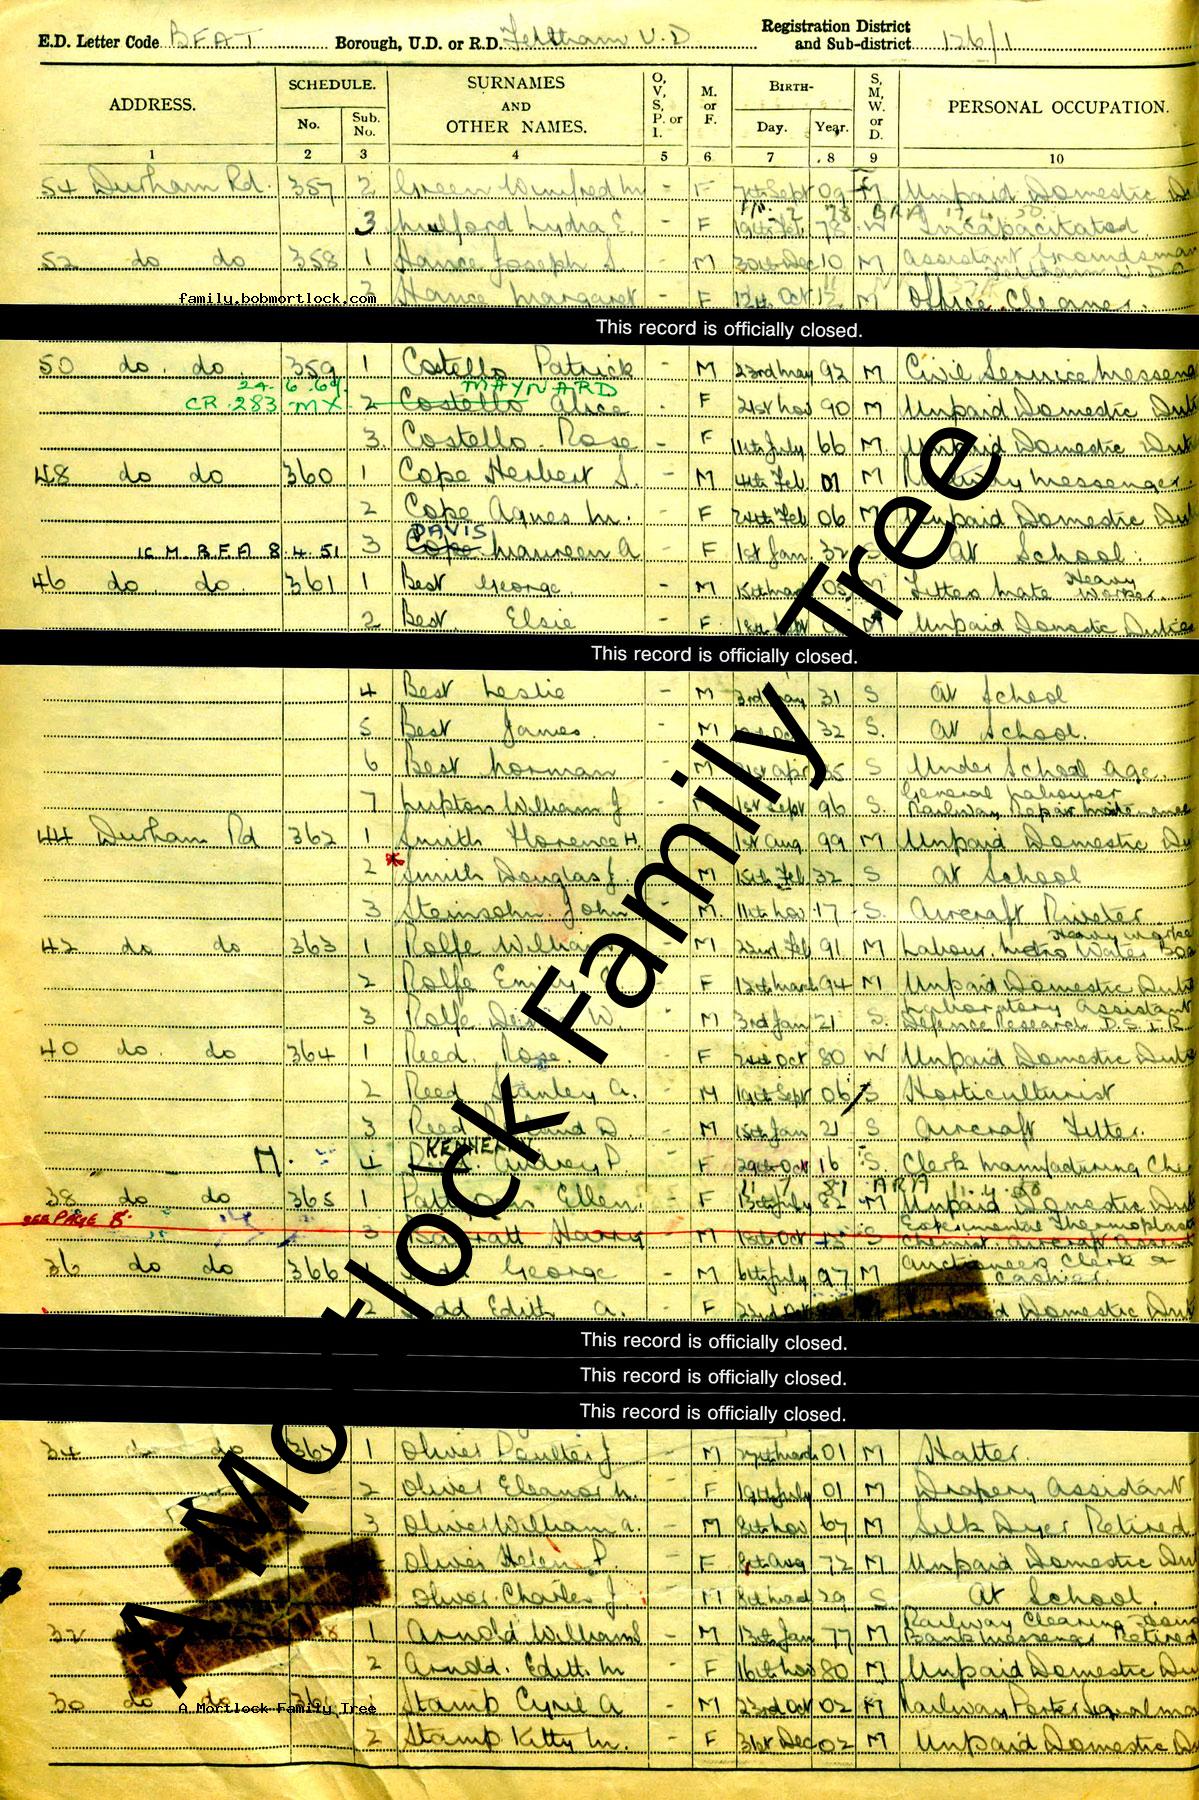 E.D. Letter Code BFAT Borough, U.D. or R.D. Feltham U.D Registration District and Sub-district 126/1
ADDRESS. SCHEDULE. No. Sub. No. SURNAMES AND OTHER NAMES. O, V, S, P. or I. M. or F. BIRTH- Day. Year. S, M, W. or D. PERSONAL OCCUPATION.
1 2 3 4 5 6 7 8 9 10
54 Durham Rd. 357 2 Green Winifred M - F 7th Sept 09 M Unpaid Domestic
3 Mulford Lydia E. - F 19th Feb 78 W Incapacitated
52 do do 358 1 Hance Joseph S. - M 30th Dec 10 M Assistant Groundsman
Feltham U.D.C
2 Hance Margaret - F 12th Oct M Office Cleaner.
family.bobmortlock.com
This record is officially closed.
50 do. do. 359 1 Costello Patrick M 23rd May 92 M Civil Service Messeng
24. 6. 69. MAYNARD
CR 283 MX 2 Costello Alice - F 21st Nov 90 M Unpaid Domestic Duti
3. Costello Rose - F 11th July 66 M Unpaid Domestic Duti
48 do do 360 1 Cope Herbert S. - M 4th Feb 01 M Railway Messenger.
2 Cope Agnes M. - F 24th Feb 06 M Unpaid Domestic Dut
DAVIS
M. BFA 8.4.51 3 Cope Maureen A - F 1st Jan 32 S At School.
46 do do. 361 1 Best George - M 15th Mar 05 M Fitters Mate Heavy Worker.
2 Best Elsie - F M Unpaid Domestic Duties
This record is officially closed.
4 Best Leslie - M 3rd May 31 S At School
5 Best James. - M Oct 32 S. At School.
6 Best Norman - M 21st Apr 35 S Under School Age.
7 Lupton William J - M 1st Sept 96 S. General Labourer
Railway Repair Maintenance
44 Durham Rd 362 1 Smith Florence H. F 1st Aug 99 M Unpaid Domestic Du
2 Smith Douglas J. M 15th Feb 32 S At School
3 Steinsohn John M. 11th Nov 17 S. Aircraft Riveter
42 do do 363 1 Rolfe William M 22nd Feb 91 M Labour. Metro Water Boa
Heavy Worke
2 Rolfe Emily F 12th March 94 M Unpaid Domestic Duti
3 Rolfe W. M 3rd Jan 21 S. Laboratory Assistant
Defence Research D.S.I.R
40 do. do 364 1 Reed. Rose. - F 24th Oct 80 W Unpaid Domestic Duti
2 Reed Stanley A. - M 19th Sept 06 S Horticulturist
3 Reed D. - M 15th Jan 21 S Aircraft Fitter.
KENNEDY
M. 4 Audrey P - F 29th Oct 16 S. Clerk Manufacturing Che
38 do do 365 1 Ellen. - F 13th July 82 M Unpaid Domestic Dut
SEE PAGE 8. 3 Barratt Harry - M 13th Oct 15 S Experimental Thermoplast
Chemist Aircraft Assist
36 do do 366 George - M 6th July 97 M Auctioneer Clerk &
Cashier.
2 Edith A. - F 22nd Domestic Dut
This record is officially closed.
This record is officially closed.
This record is officially closed.
34 do do 367 1 Oliver Poulter J - M 27th March 01 M Hatter.
2 Oliver Eleanor M. - F 19th July 01 M Drapery Assistant
3 Oliver William A. - M 8th Nov 67 M Silk Dyer Retired
Oliver Helen P - F 8th Aug 72 M Unpaid Domestic Dut
Oliver Charles J. - M 8th March 29 S At School.
32 1 Arnold William S - M 13th Jan 77 M Railway Clearing House
Bank Messenger Retired
2 Arnold. Edith M - F 16th Nov 80 M Unpaid Domestic Du
30 do do 1 Stamp Cyril A - M 23rd Oct 02 M Railway Porter Signalma
A Mortlock Family Tree
2 Stamp Kitty M. - F 31st Dec 02 M Unpaid Domestic Du
A Mortlock Family Tree